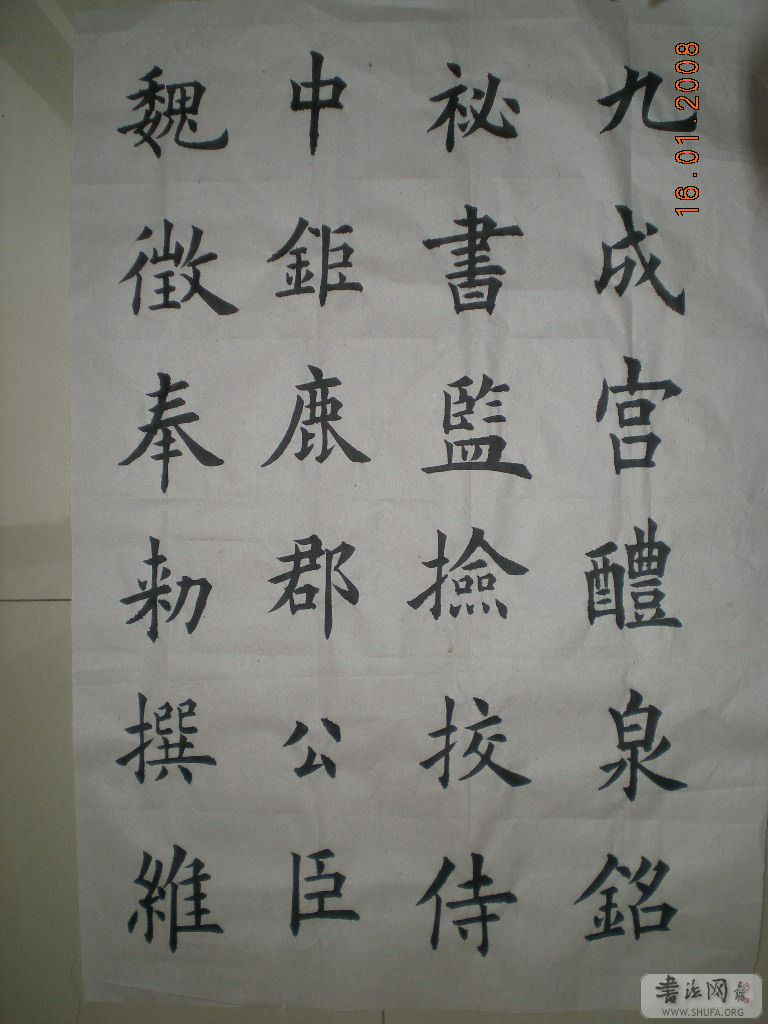 九成宮醴泉銘
祕書監撿挍侍
中鉅鹿郡公臣
魏徵奉勑撰維
16.01.2008
书法网
WWW.SHUFA.ORG